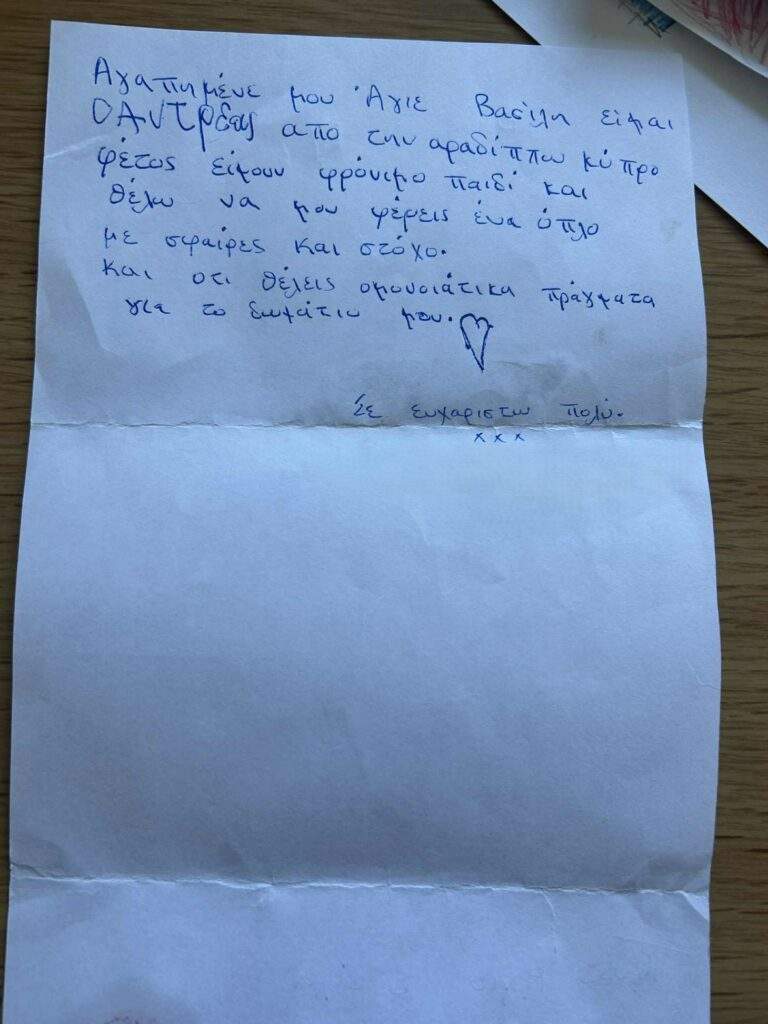 Αγαπημένε μου Άγιε Βασίλη είμαι
Ο ΑΝΤΡέας απο την αραδίππου κύπρο
φέτος είμουν φρόνιμο παιδί και
θέλω να μου φέρεις ένα όπλο
με σφαίρες και στόχο.
και οτι θέλεις ομονοιάτικα πράγματα
για το δωμάτιο μου.
Σε ευχαριστω πολύ.
x x x